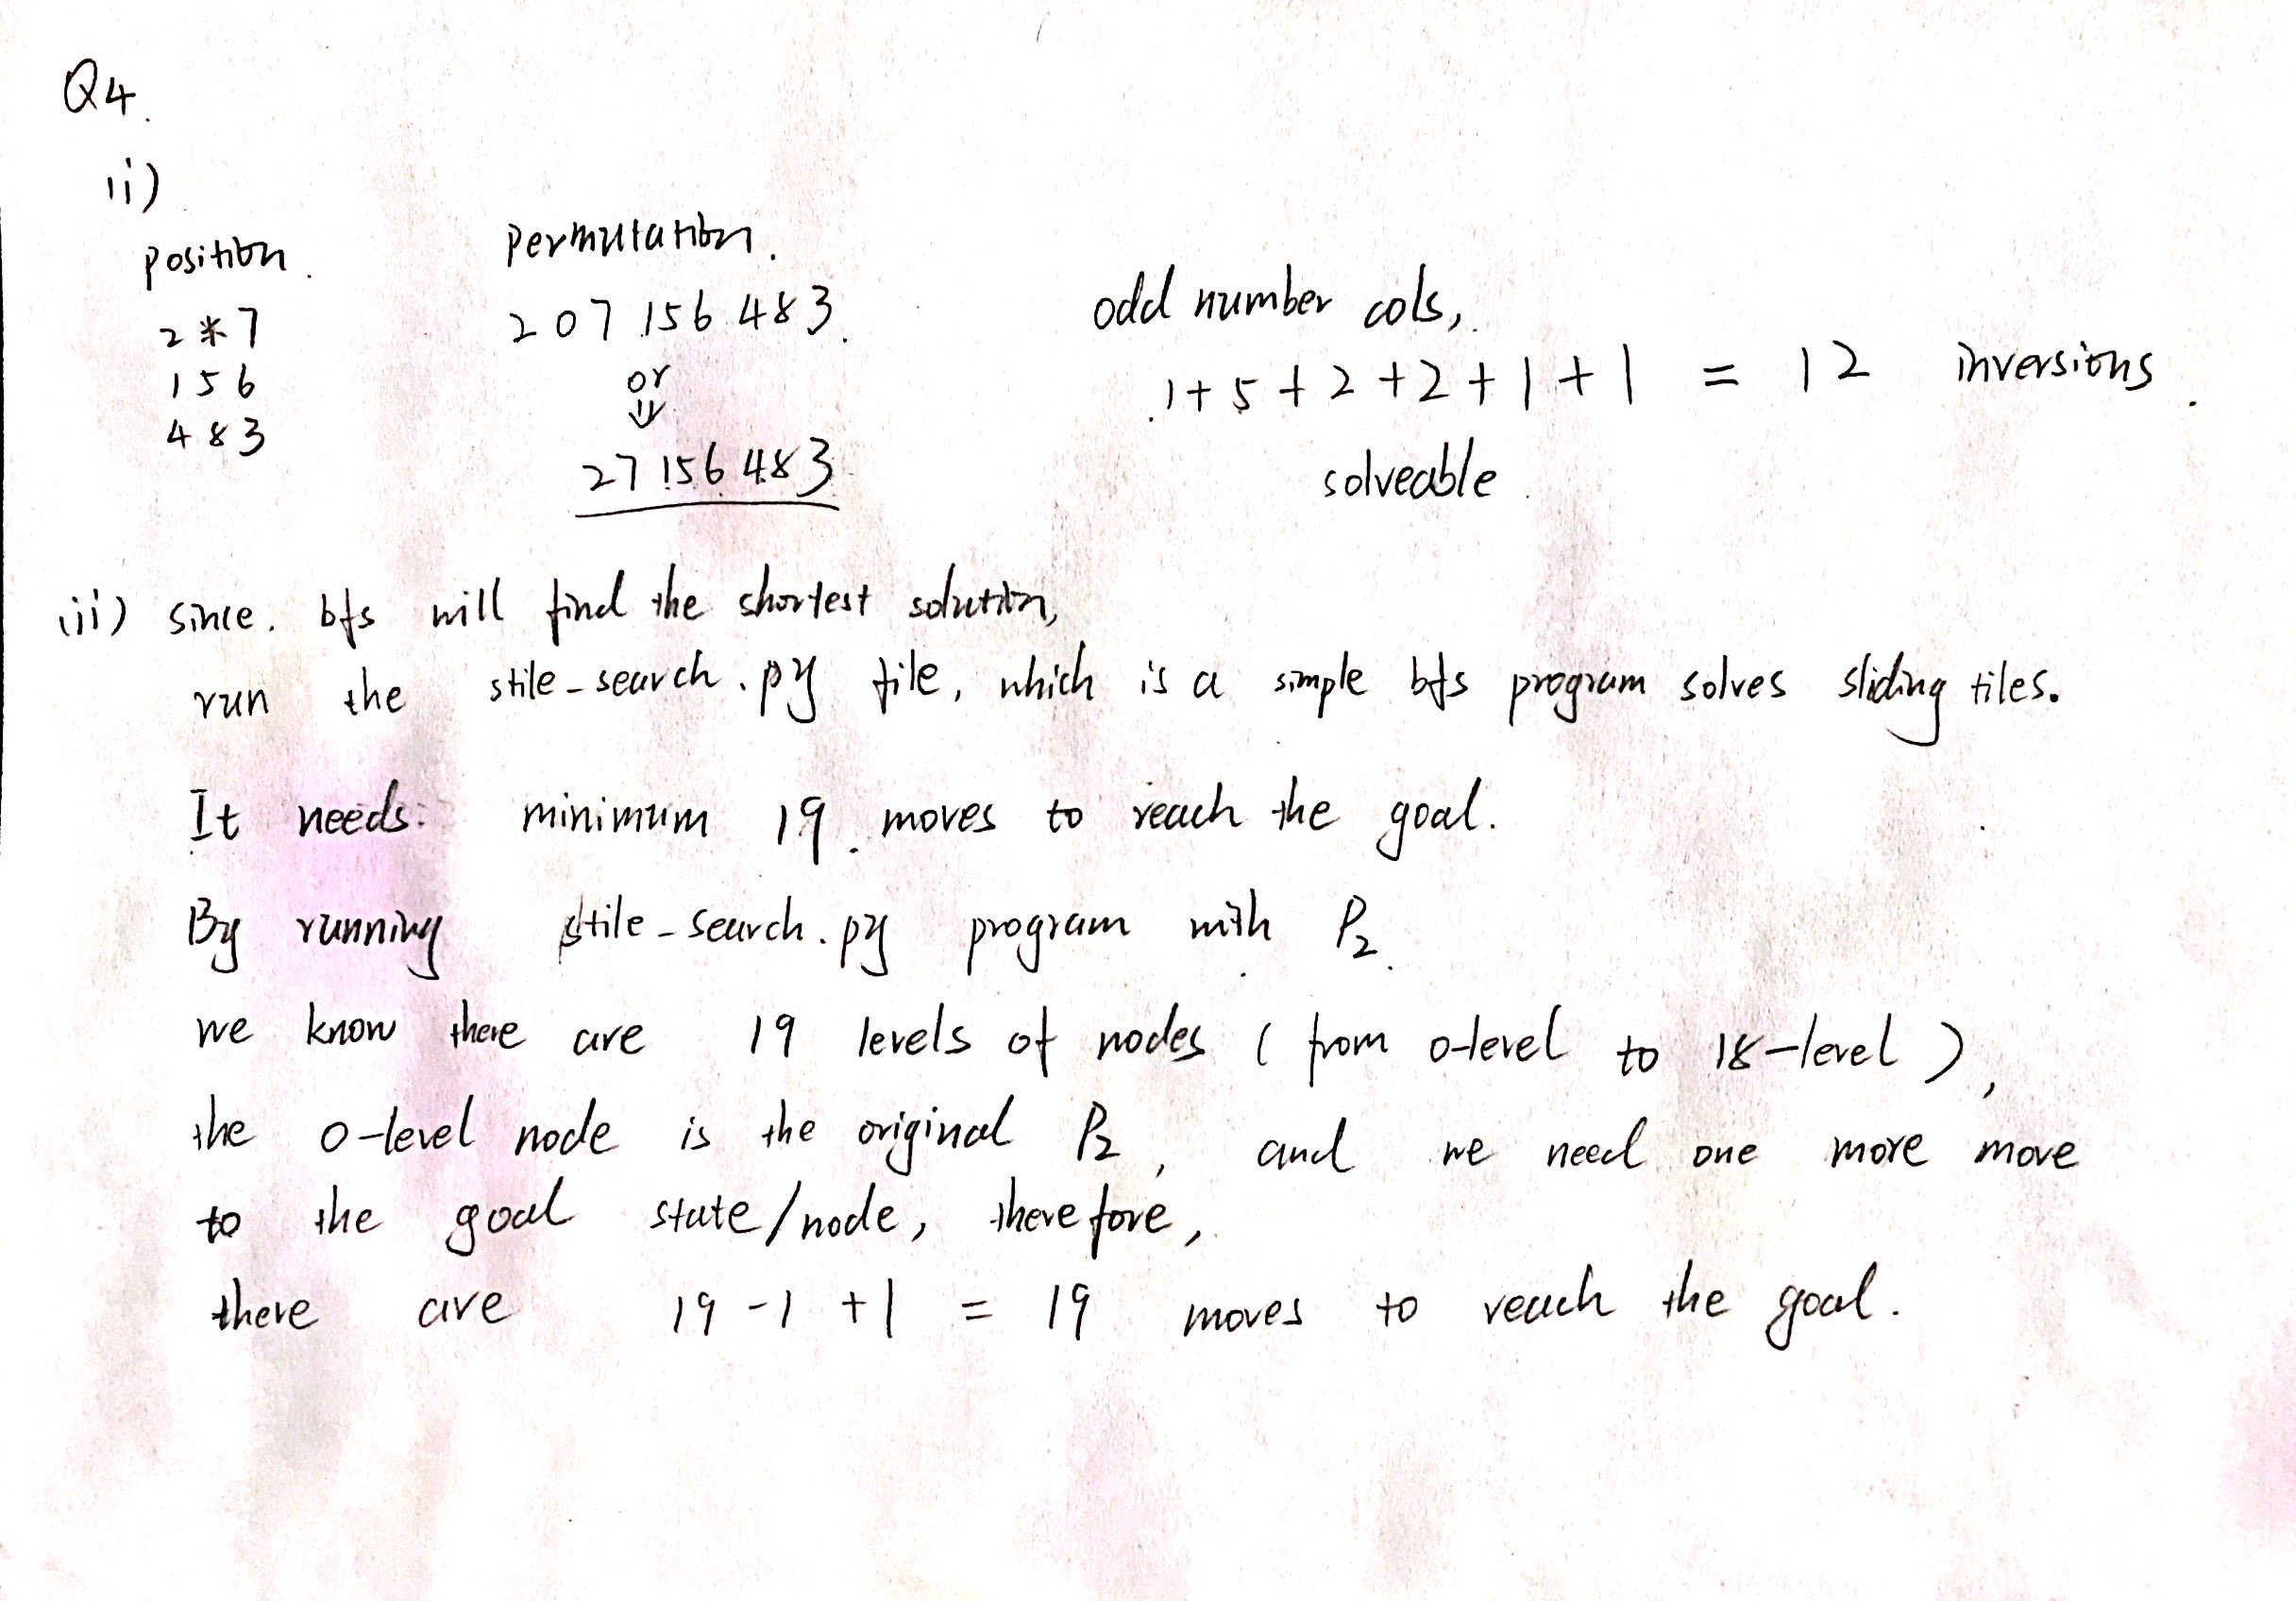 Q4.
ii)
position.
2 * 7
1 5 6
4 8 3
permutation.
2 0 7 1 5 6 4 8 3.
or
⇓
2 7 1 5 6 4 8 3
odd number cols,
1 + 5 + 2 + 2 + 1 + 1 = 12 inversions.
solveable
iii) since. bfs will find the shortest solution,
run the stile_search.py file, which is a simple bfs program solves sliding tiles.
It needs: minimum 19 moves to reach the goal.
By running stile_search.py program with P2.
we know there are 19 levels of nodes (from 0-level to 18-level),
the 0-level node is the original P2, and we need one more move
to the goal state/node, therefore,
there are 19 - 1 + 1 = 19 moves to reach the goal.